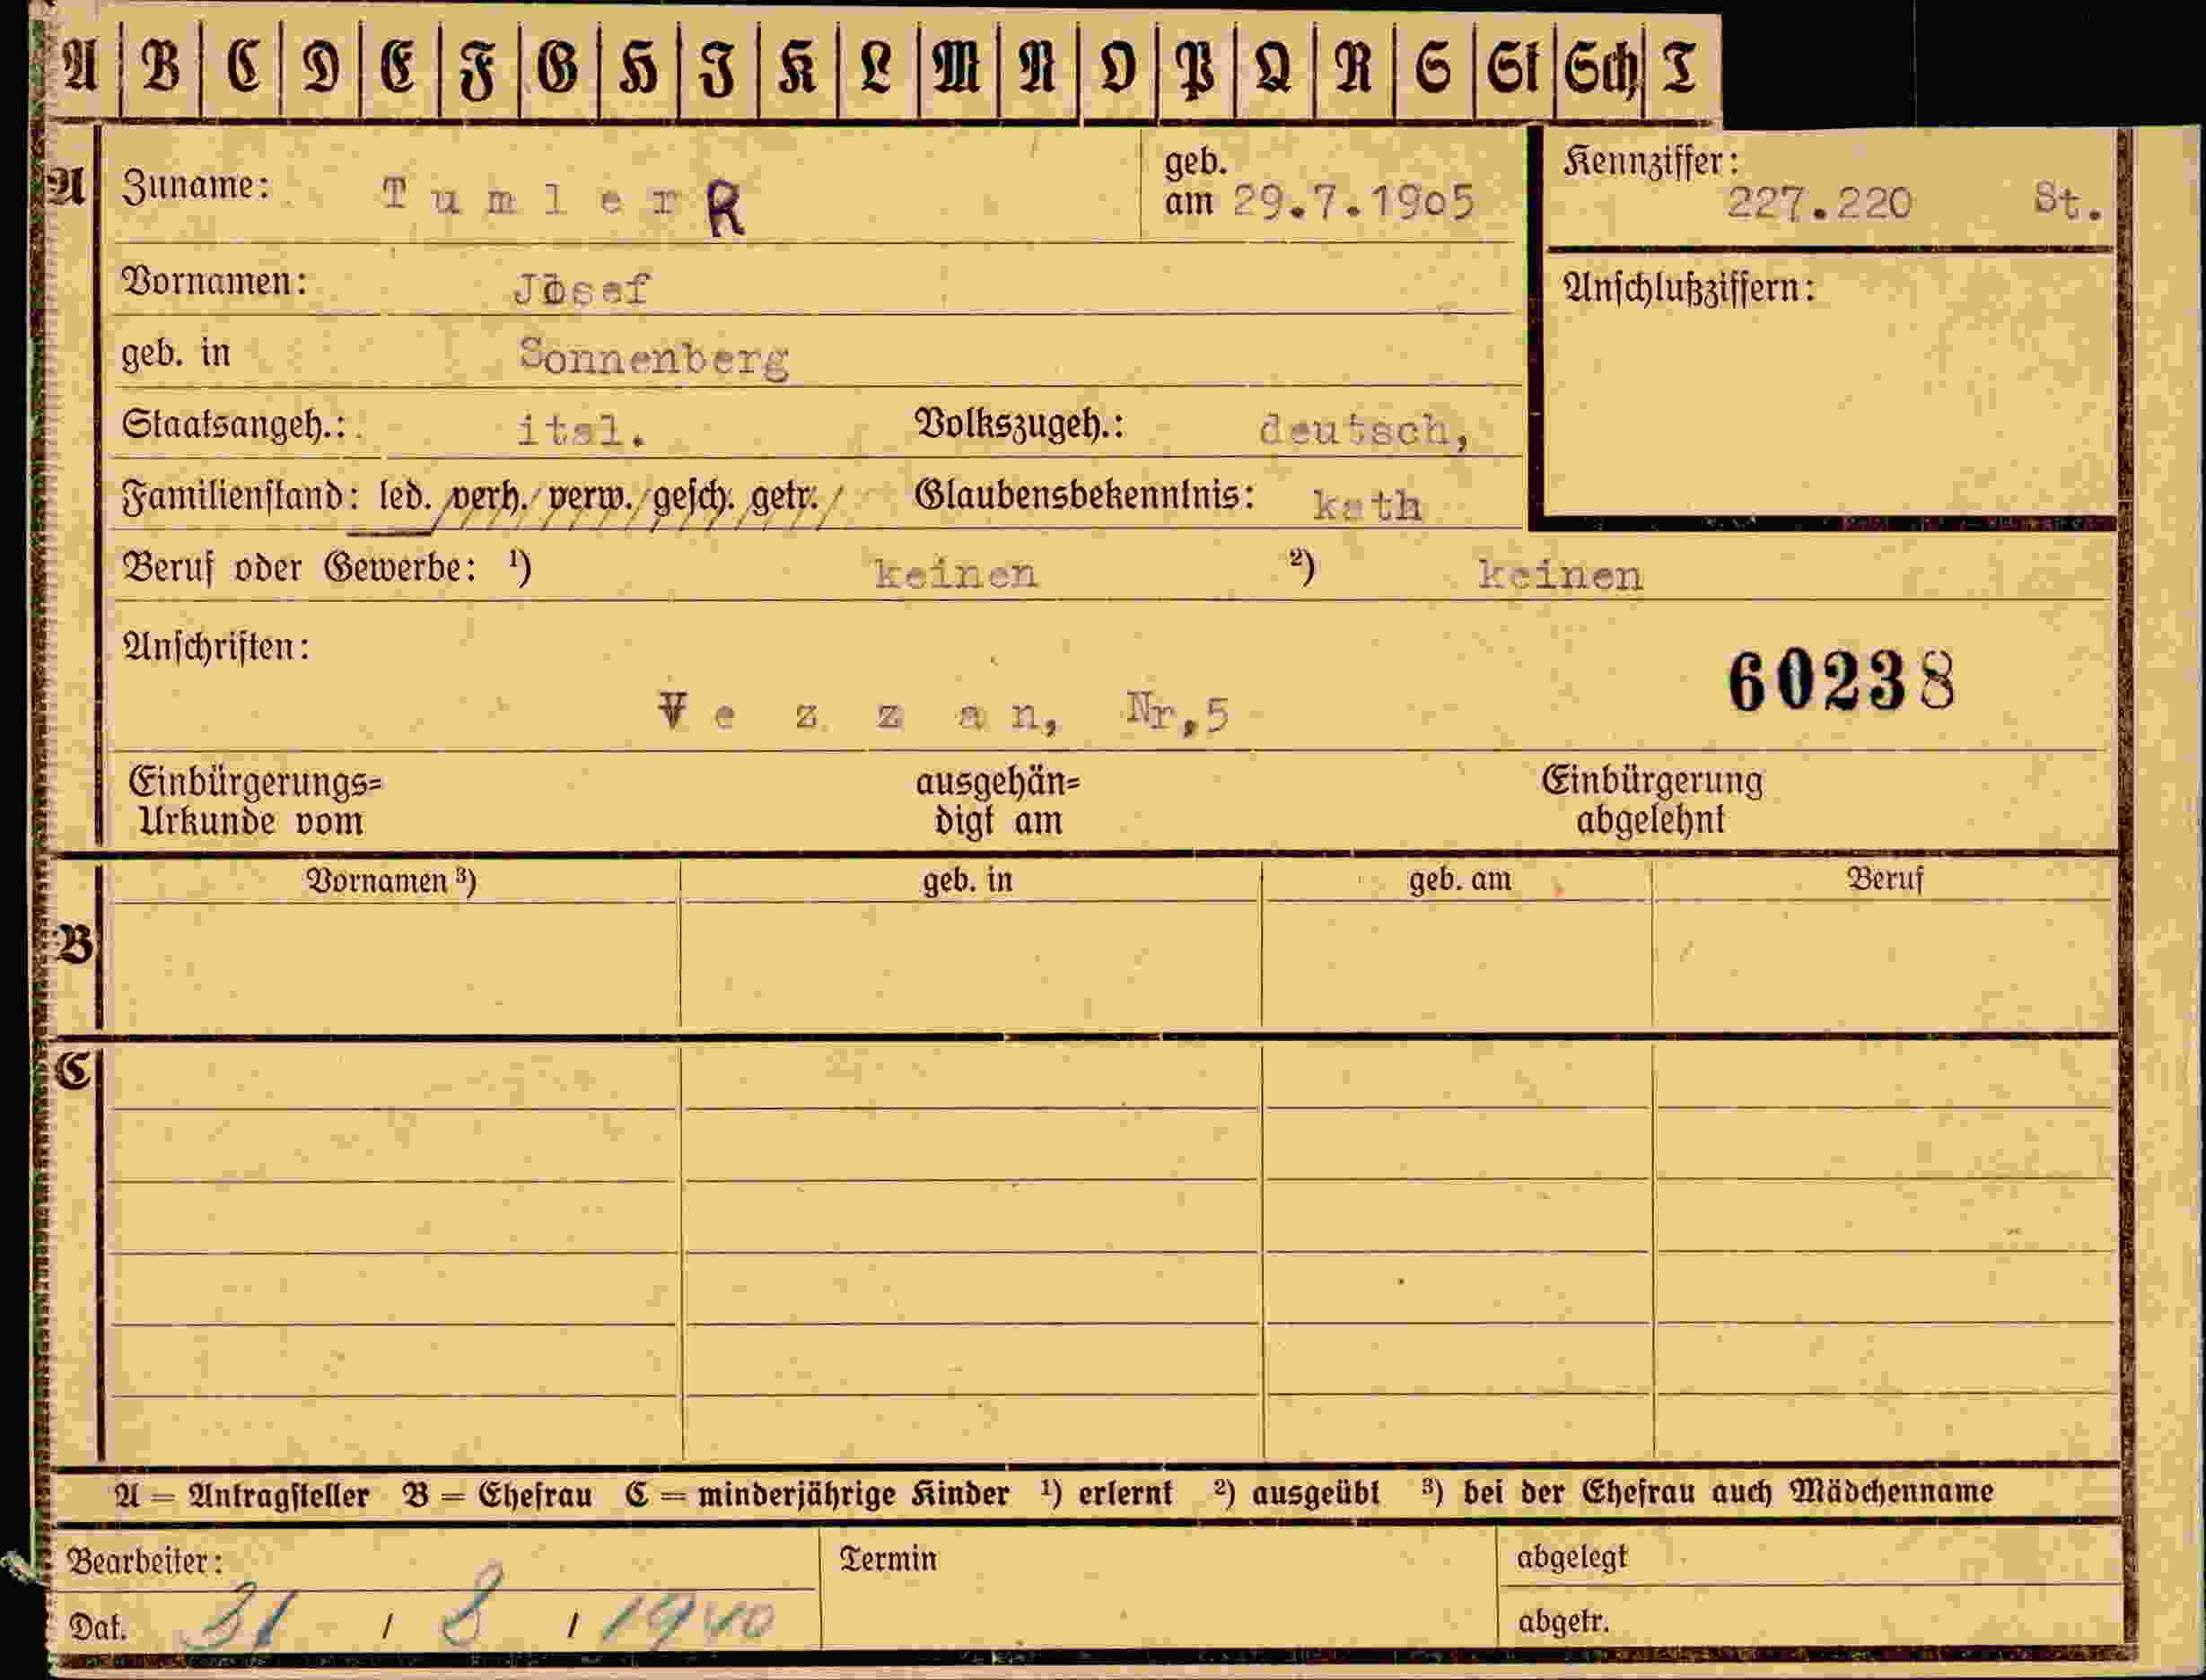 A B C D E F G H I K L M N O P Q R S St Sch T
A Zuname: Tumler R geb. am 29.7.1905 Kennziffer: 227.220 St.
Vornamen: Josef Anschlußziffern:
geb. in Sonnenberg
Staatsangeh.: ital. Volkszugeh.: deutsch,
Familienstand: led. verh. verw. gesch. getr. Glaubensbekenntnis: kath
Beruf oder Gewerbe: ¹) keinen ²) keinen
Anschriften:
Vezzan, Nr,5 60238
Einbürgerungs= ausgehän= Einbürgerung
Urkunde vom digt am abgelehnt
Vornamen ³) geb. in geb. am Beruf
B
C
A = Antragsteller B = Ehefrau C = minderjährige Kinder ¹) erlernt ²) ausgeübt ³) bei der Ehefrau auch Mädchenname
Bearbeiter: Termin abgelegt
Dat. 31 / 8 / 1940 abgetr.